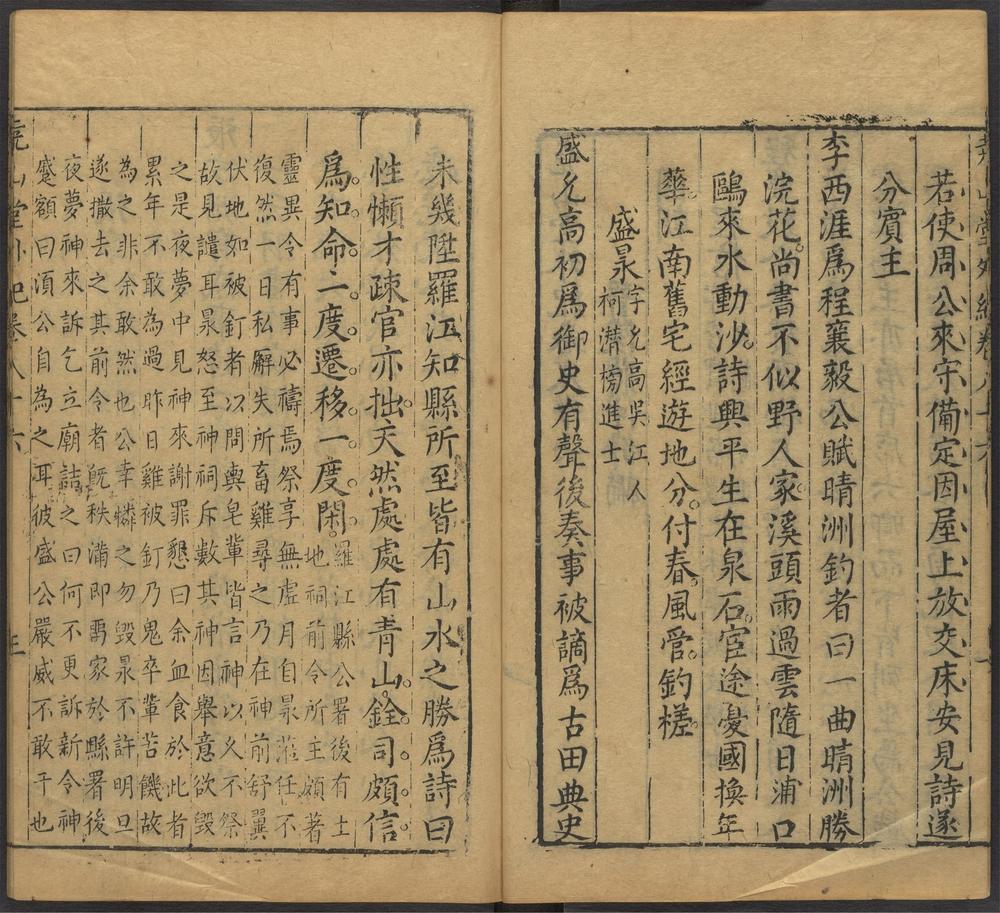 堯山堂外紀卷八十六
若使周公來守備定因屋上放交床安見詩遂
分賓主
李西涯爲程襄毅公賦晴洲釣者曰一曲晴洲勝
浣花尚書不似野人家溪頭雨過雲隨日浦口
鷗來水動沙詩興平生在泉石宦途憂國換年
華江南舊宅經遊地分付春風管釣槎
盛㫤字允高吳江人
柯潛榜進士
盛允高初爲御史有聲後奏事被謫爲古田典史
未幾陞羅江知縣所至皆有山水之勝爲詩曰
性懶才疎官亦拙天然處處有青山銓司頗信
爲知命一度遷移一度閑羅江縣公署後有土
地祠前令所主頗著
靈異令有事必禱焉祭享無虛月自㫤蒞任不
復然一日私解失所畜雞尋之乃在神前舒翼
伏地如被釘者以問輿皂輩皆言神以久不祭
故見譴耳㫤怒至神祠斥數其神因舉意欲毀
之是夜夢中見神來謝罪懇曰余血食於此者
累年不敢為過昨日雞被釘乃鬼卒輩苦饑故
為之非余敢然也公幸憐之勿毀㫤不許明旦
遂撤去之其前令者旣秩滿即寓家於縣署後
夜夢神來訴乞立廟詰之曰何不更訴新令神
蹙額曰湏公自為之耳彼盛公嚴威不敢干也
堯山堂外紀卷八十六